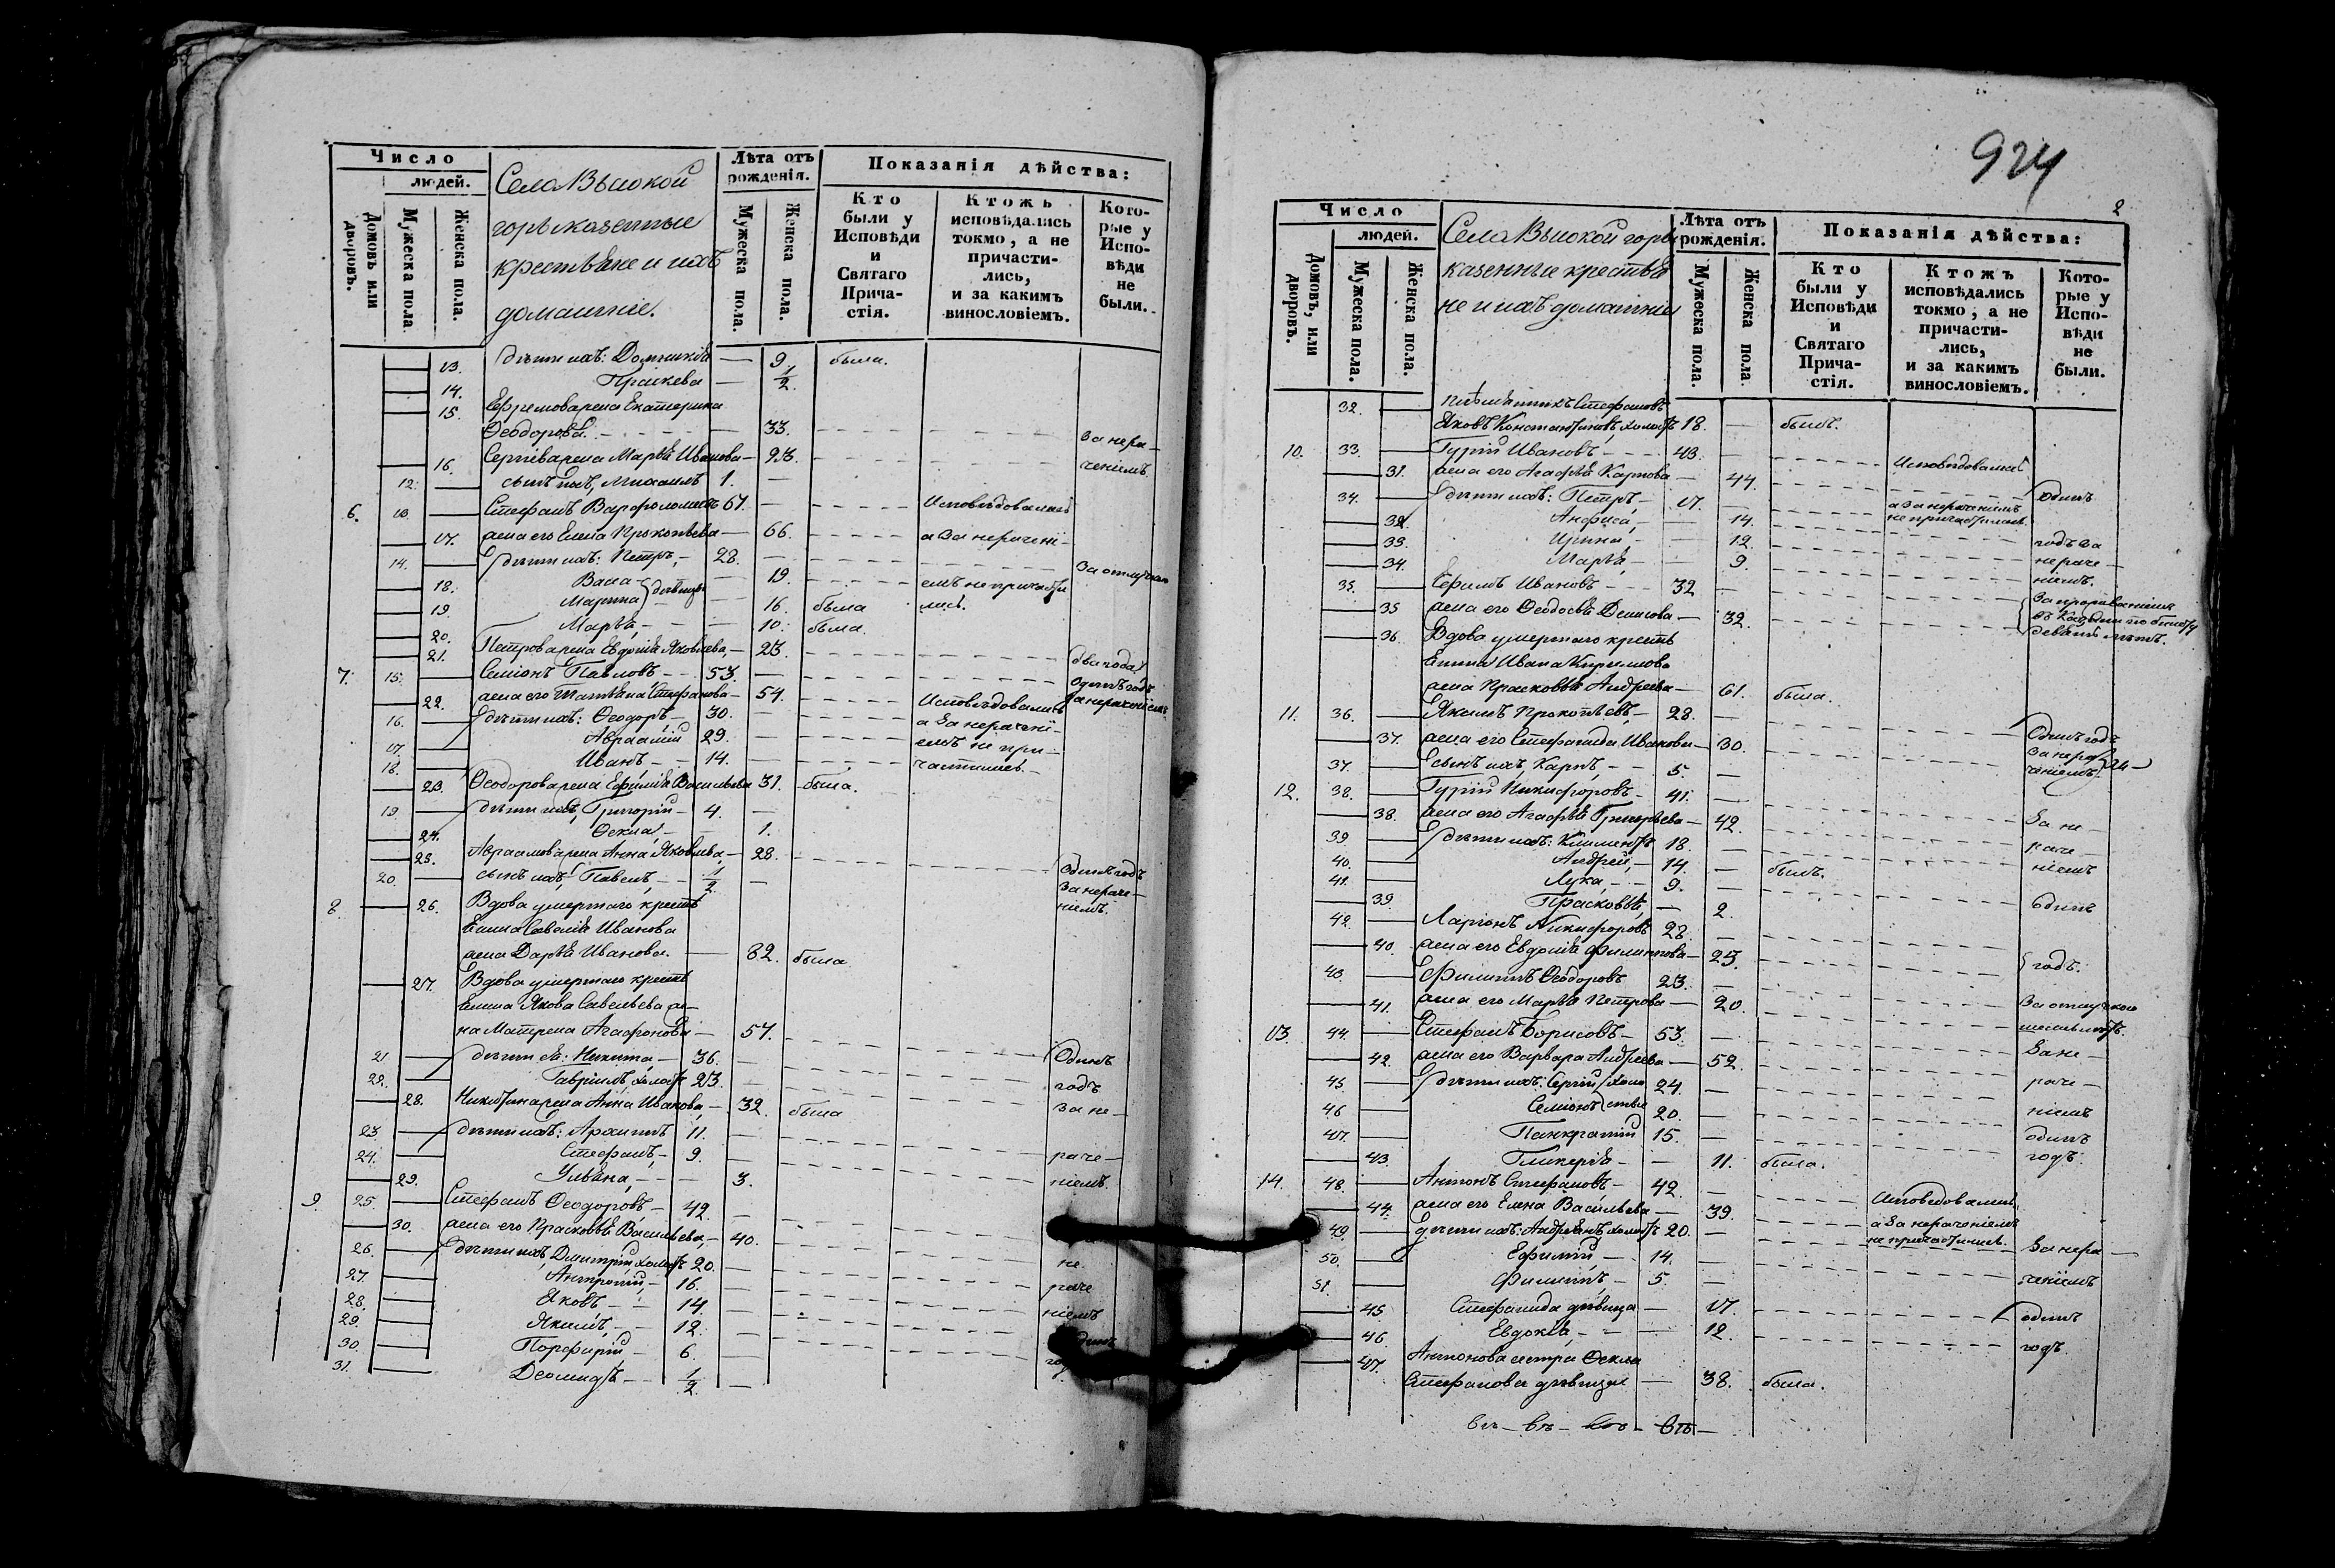 Число
людей.
Домовъ или дворовъ.
Мужеска пола.
Женска пола.
Села Высокой
горы казенные
крестьяне и ихъ
домашніе.
Лѣта отъ рожденія.
Мужеска пола.
Женска пола.
Показанія дѣйства:
Кто были у Исповѣди и Святаго Причастія.
Ктожъ исповѣдались токмо, а не причастились, и за какимъ винословіемъ.
Которые у Исповѣди не были.
13. дѣти ихъ: Домникія — 9 была.
14. Праскева — 1/2.
15. Ефремова жена Екатерина
Ѳеодорова — 33.
16. Сергіева жена Марѳа Иванова — 23. За нера-
12. сынъ ихъ, Михаилъ 1. — ченіемъ
6. 13. Стефанъ Варфоломеевъ 67. — Исповѣдовались
17. жена его Елена Прокопьева — 66. а за нерачені-
14. дѣти ихъ: Петръ, 28. — За отлучкою
18. Васса — 19. емъ не причасти
19. Марина дѣвицы — 16. была лись.
20. Марѳа, — 10. была.
21. Петрова жена Евдокія Яковлева, — 23. два года
7. 15. Семіонъ Павловъ — 53. — одинъ годъ
22. жена его Татьяна Стефанова — 54. Исповѣдовались за нераченіемъ
16. дѣти ихъ: Ѳеодоръ, — 30. — а за нерачені-
17. Авраамій 29. — емъ не при-
18. Иванъ — 14. — частились.
23. Ѳеодорова жена Ефимія Васильева 31. была.
19. дѣти ихъ, Григорій — 4. —
24. Ѳекла, — 1.
25. Авраамова жена Анна Яковлева, — 28. одинъ годъ
20. сынъ ихъ, Павелъ, — 1/2. — за нераче-
8. 26. Вдова умершаго кресть ніемъ.
янина Савелія Иванова
жена Дарья Иванова. — 82. была
27. Вдова умершаго кресть
янина Якова Савельева же-
на Матрена Агафонова — 57.
21 дѣти ея: Никита, — 36. — Одинъ
22. Гавріилъ, холостъ 23. — годъ
28. Никитина жена Анна Иванова, — 32. была За не-
23. дѣти ихъ: Архиппъ 11. —
24. Стефанъ, — 9. — раче-
29. Ульяна, — 3. ніемъ.
9. 25. Стефанъ Ѳеодоровъ — 42 —
30. жена его Прасковья Васильева, — 40.
26. дѣти ихъ, Димитрій холостъ 20. — не
27. Антропій, — 16. — раче
28. Яковъ — 14. — ніемъ
29. Якимъ, — 12. —
30. Порфирій — 6. —
31. Деомидъ — 1/2 —
924
2
Число
людей.
Домовъ, или дворовъ.
Мужеска пола.
Женска пола.
Села Высокой горы
казенные крестья
не и ихъ домашніе
Лѣта отъ рожденія.
Мужеска пола.
Женска пола
Показанія дѣйства:
Кто были у Исповѣди и Святаго Причастія.
Ктожъ исповѣдались токмо, а не причастились, и за какимъ винословіемъ.
Которые у Исповѣди не были.
32. племянникъ Стефановъ
Яковъ Константиновъ, холостъ 18. — былъ.
10. 33. Гурій Ивановъ — 43. — Исповѣдовались
31. жена его Агафья Карпова — 44. Одинъ
34. дѣти ихъ: Петръ, — 17. — а за нераченіемъ
32 Анфиса, — 14. не причастились
33. Ирина — 12. годъ за
34. Марѳа, — 9. нераче-
35. Ефимъ Ивановъ — 32 — ніемъ.
35 жена его Ѳеодосья Денисова — 32. За проживаніемъ
36. Вдова умершаго кресть въ Казани по билету
янина Ивана Кириллова девять лѣтъ.
жена Прасковья Андреева — 61. была.
11. 36. Якимъ Прокопьевъ, — 28. —
37. жена его Стефанида Иванова — 30. Одинъ годъ
37. сынъ ихъ, Карпъ, — 5. — за нера
12. 38. Гурій Никифоровъ — 41. — ченіемъ.
38. жена его Агафья Григорьева — 42. За не-
39 дѣти ихъ: Климентъ 18. — раче-
40. Андрей, — 14. — былъ. ніемъ
41. Лука, — 9. —
39. Прасковья, — 2. Одинъ
42. Ларіонъ Никифоровъ 28. —
40. жена его Евдокія Филиппова — 25. годъ.
43. Филиппъ Ѳеодоровъ 23. —
41. жена его Марѳа Петрова — 20. За отлучкою
13. 44. Стефанъ Борисовъ — 53. —
42. жена его Варвара Андреева — 52. За не-
45 дѣти ихъ: Сергій холо 24. — раче-
46 Семіонъ стые 20. — ніемъ
47. Панкратій 15. — одинъ
43. Гликерія — — 11. была. годъ.
14. 48. Антонъ Стефановъ — 42. — Исповѣдовались
44. жена его Елена Васильева — 39. а за нераченіемъ
49. дѣти ихъ: Андріянъ, холостъ 20. — не причастились. За нера —
50. Ефимій, — 14. — ченіемъ
51. Филиппъ, — 5. —
45. Стефанида дѣвица — 17. одинъ
46. Евдокія, — 12. годъ
47. Антонова сестра Ѳекла
Стефанова дѣвица — 38. была.